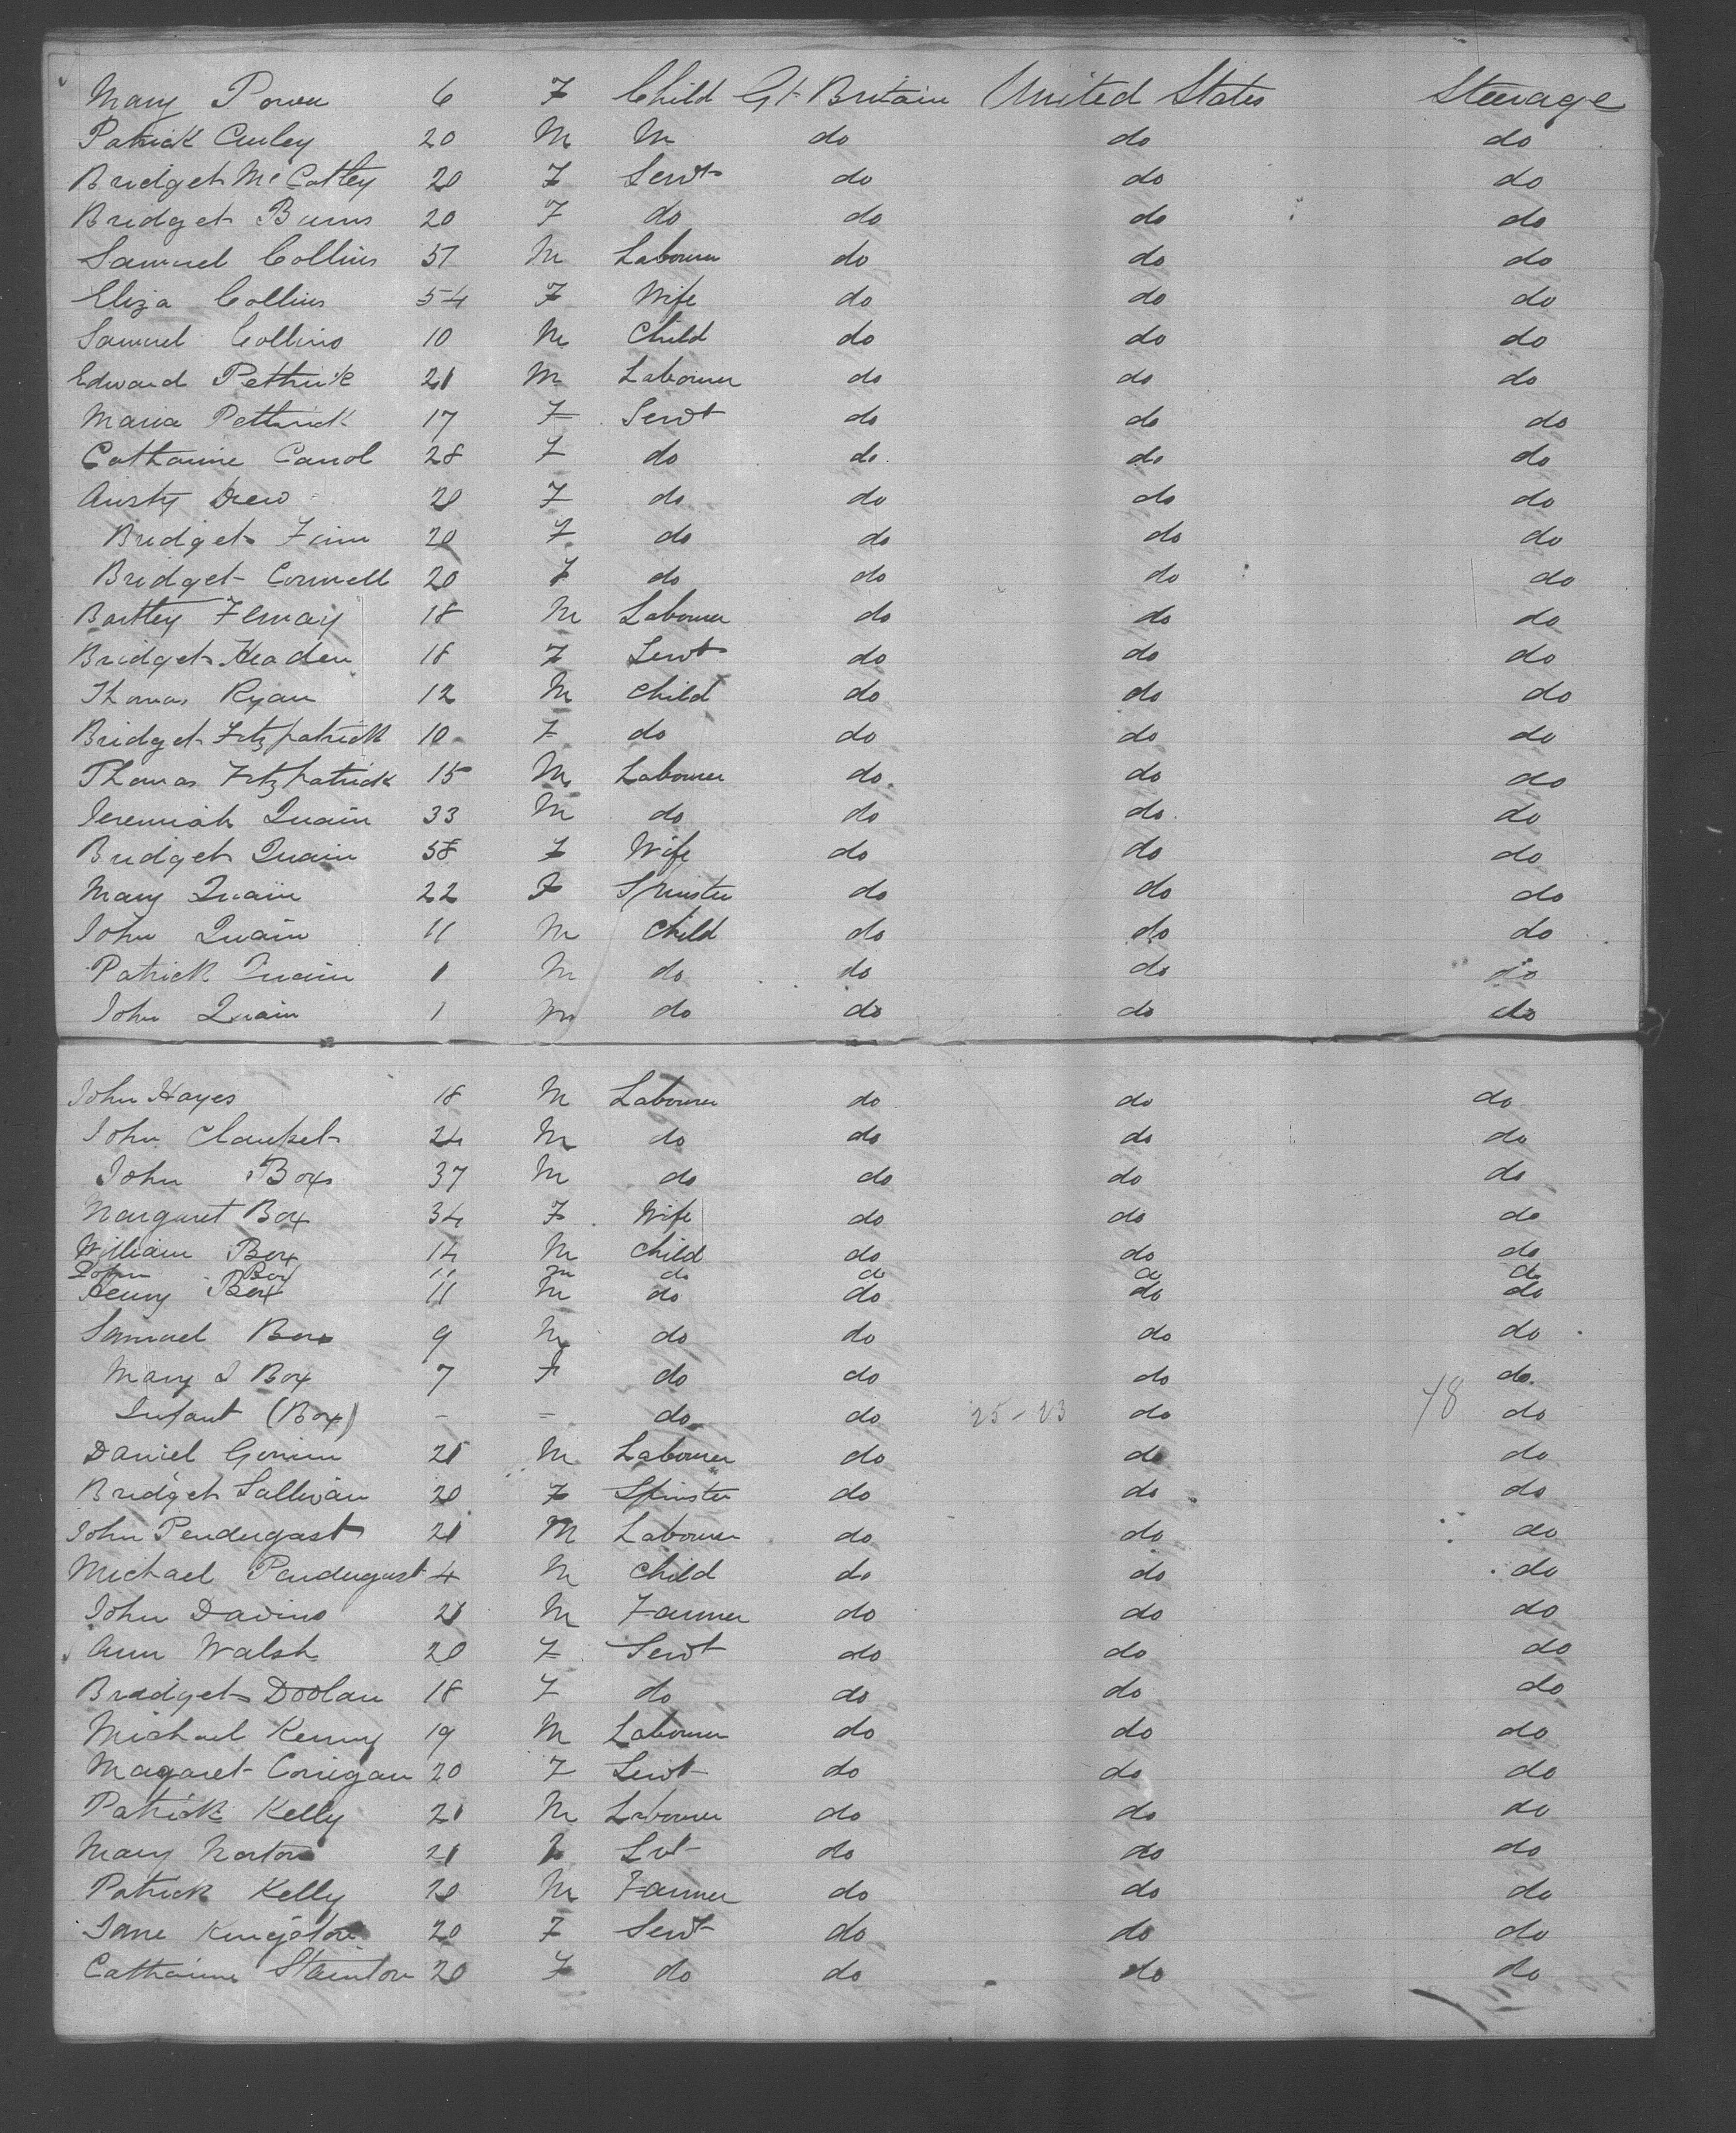 Mary Power 6 F Child Gt Britain United States Steerage
Patrick Curley 20 M M do do do
Bridget McCattey 20 F Servt do do do
Bridget Burns 20 F do do do do
Samuel Collins 57 M Labourer do do do
Eliza Collins 54 F Wife do do do
Samuel Collins 10 M Child do do do
Edward Pethrick 21 M Labourer do do do
Maria Pethrick 17 F Servt do do do
Catharine Carrol 28 F do do do do
Austy Drew 20 F do do do do
Bridget Finn 20 F do do do do
Bridget Connell 20 F do do do do
Bartley 18 M Labourer do do do
Bridget Headen 18 F Servt do do do
Thomas Ryan 12 M Child do do do
Bridget Fitzpatrick 10 F do do do do
Thomas Fitzpatrick 15 M Labourer do do do
Jeremiah Quain 33 M do do do do
Bridget Quain 58 F Wife do do do
Mary Quain 22 F Spinster do do do
John Quain 11 M Child do do do
Patrick Quain 1 M do do do do
John Quain 1 M do do do do
John Hayes 18 M Labourer do do do
John 24 M do do do do
John Box 37 M do do do do
Margaret Box 34 F Wife do do do
William Box 14 M Child do do do
John Box 11 M do do do do
Henry Box 11 M do do do do
Samuel Box 9 M do do do do
Mary J Box 7 F do do do do
Infant (Box) - - do do 25-23 do 48 do
Daniel 21 M Labourer do do do
Bridget Sullivan 20 F Spinster do do do
John Pendergast 21 M Labourer do do do
Michael Pendergast 4 M Child do do do
John Davins 21 M Farmer do do do
Ann Walsh 20 F Servt do do do
Bridget Doolan 18 F do do do do
Michael Kenny 19 M Labourer do do do
Magaret Corrigan 20 F Servt do do do
Patrick Kelly 21 M Labourer do do do
Mary Norton 21 F Svt do do do
Patrick Kelly 20 M Farmer do do do
Jane Kingston 20 F Servt do do do
Catharine Stainton 20 F do do do do